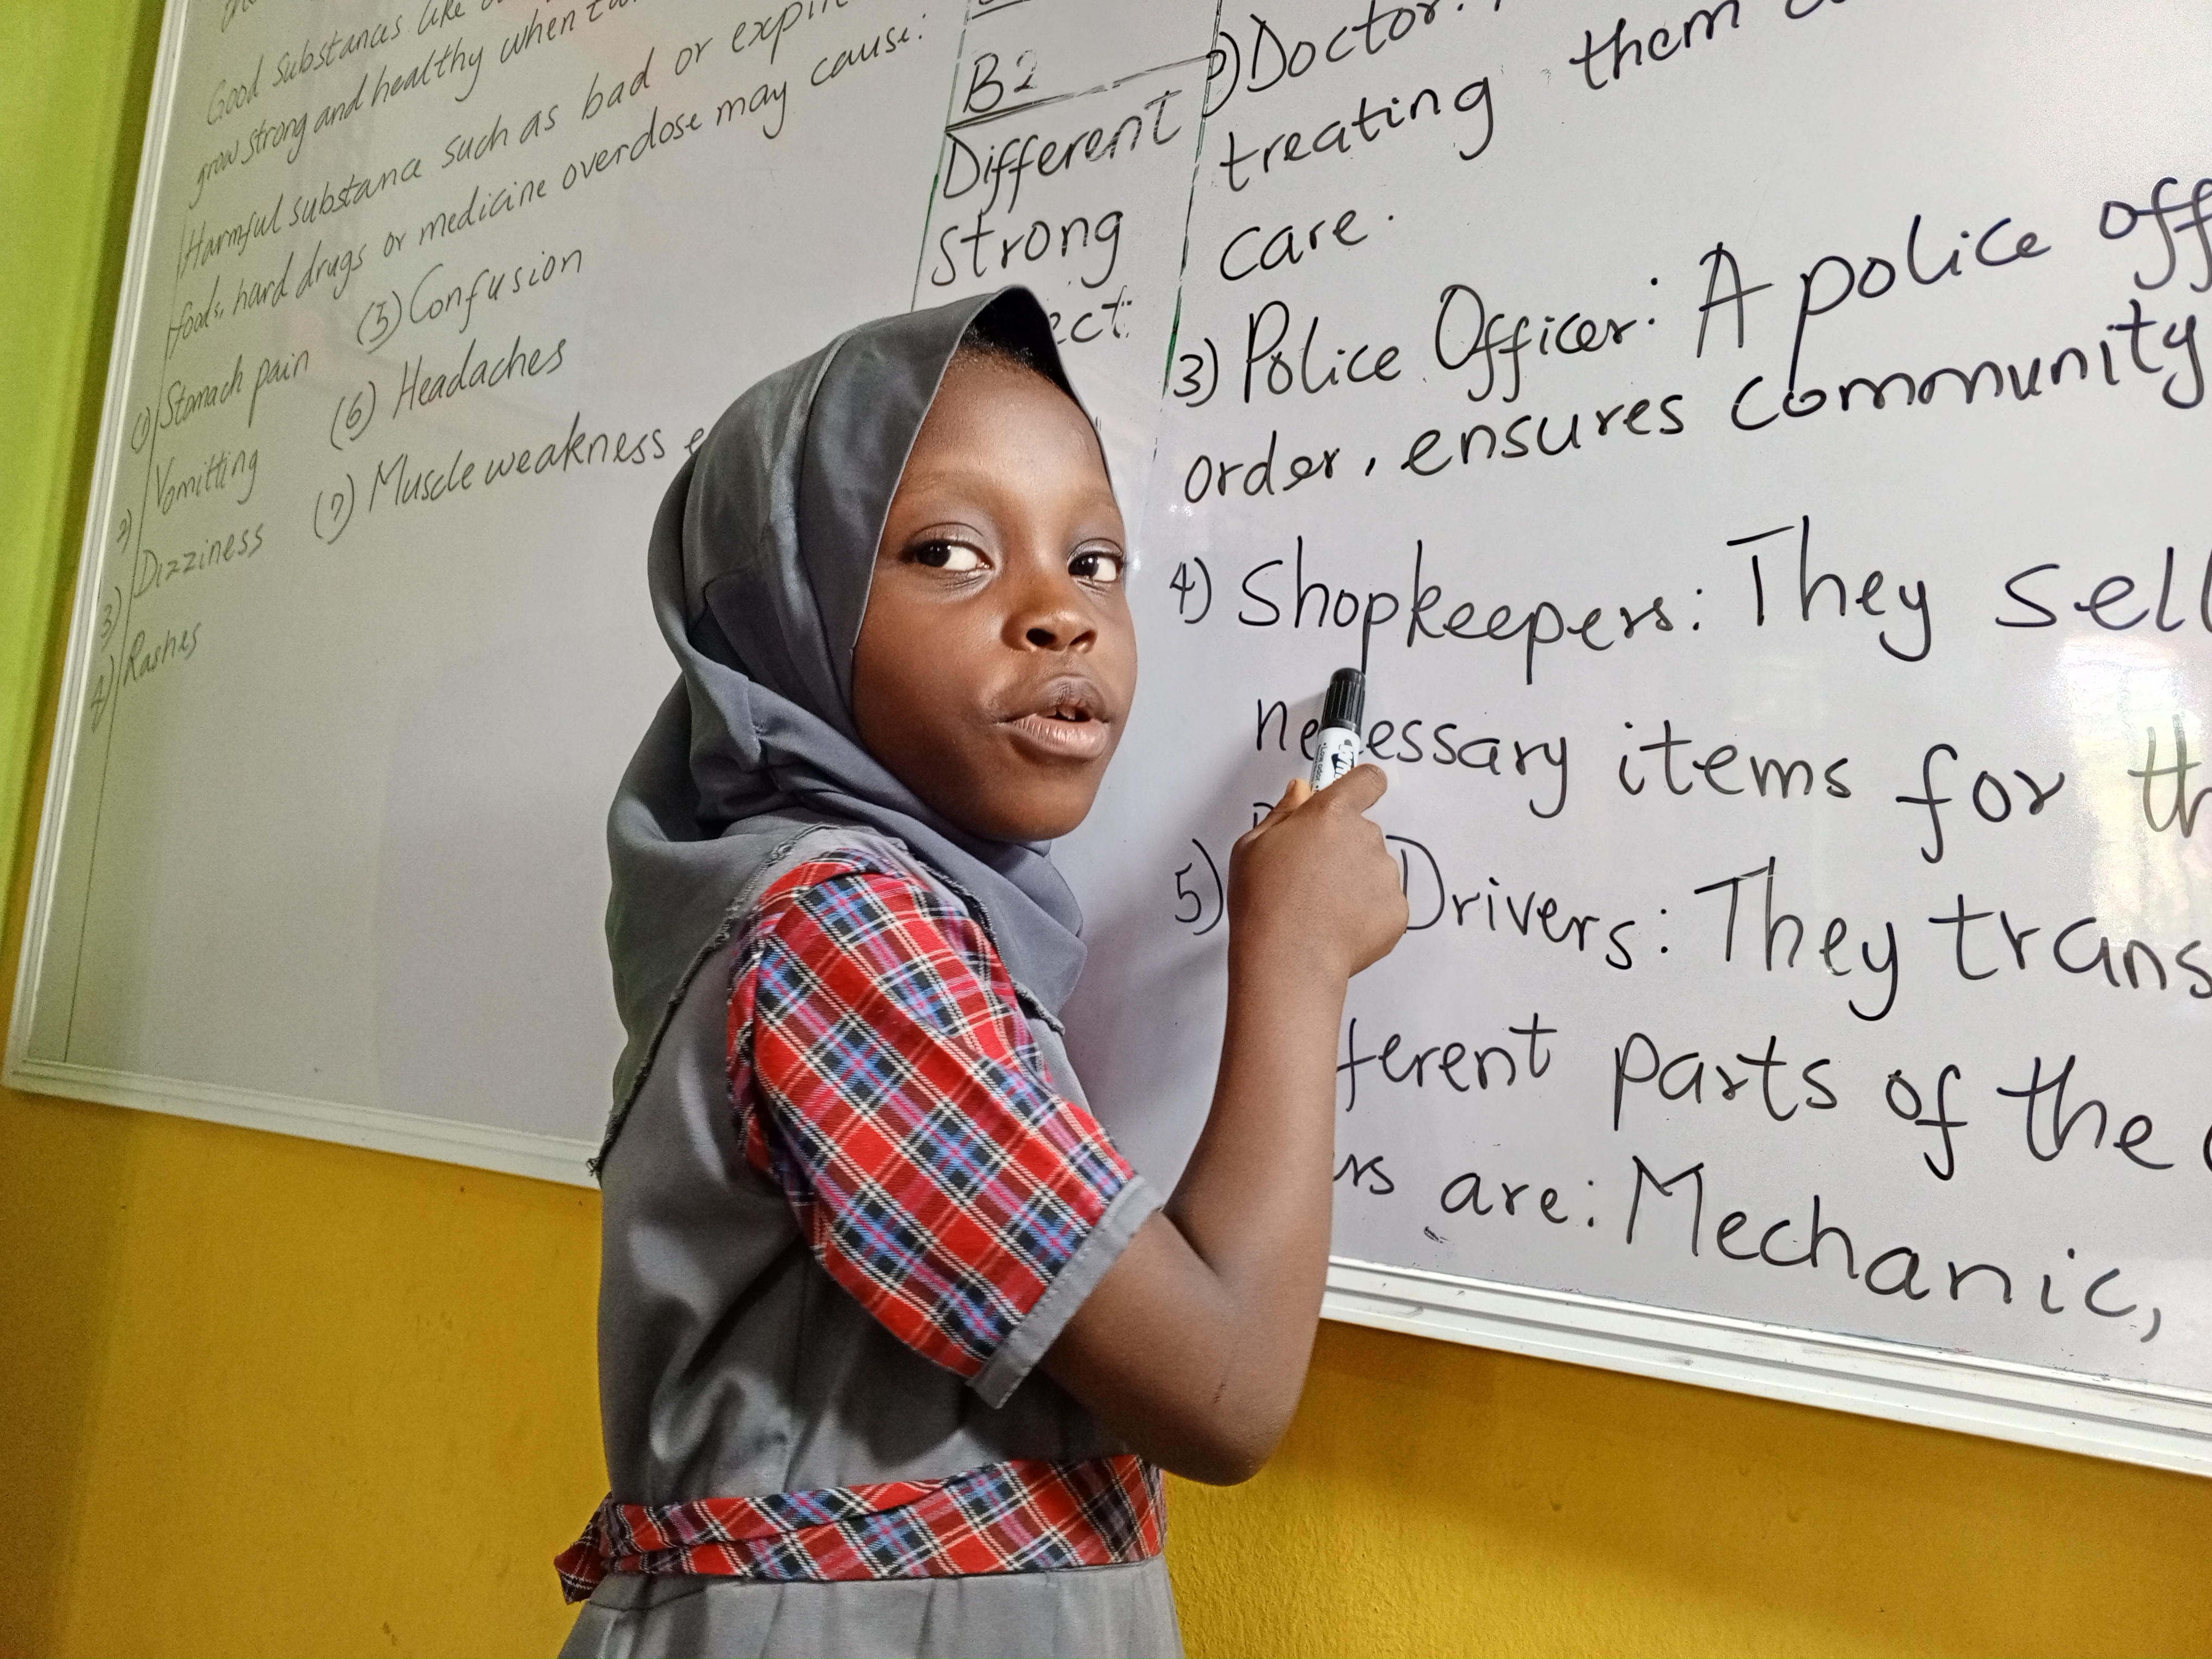 Good substances like
grow strong and healthy when
Harmful substance such as bad or
foods, hard drugs or medicine overdose may cause:
(1) Stomach pain (5) Confusion
2) Vomitting (6) Headaches
3) Dizziness (7) Muscle weakness
4) Rashes
B2
Different
Strong
ect
2) Doctor:
treating them
care.
3) Police Officer: A police off
order, ensures community
4) Shopkeepers: They sell
necessary items for th
5) Drivers: They trans
ferent parts of the
rs are: Mechanic,